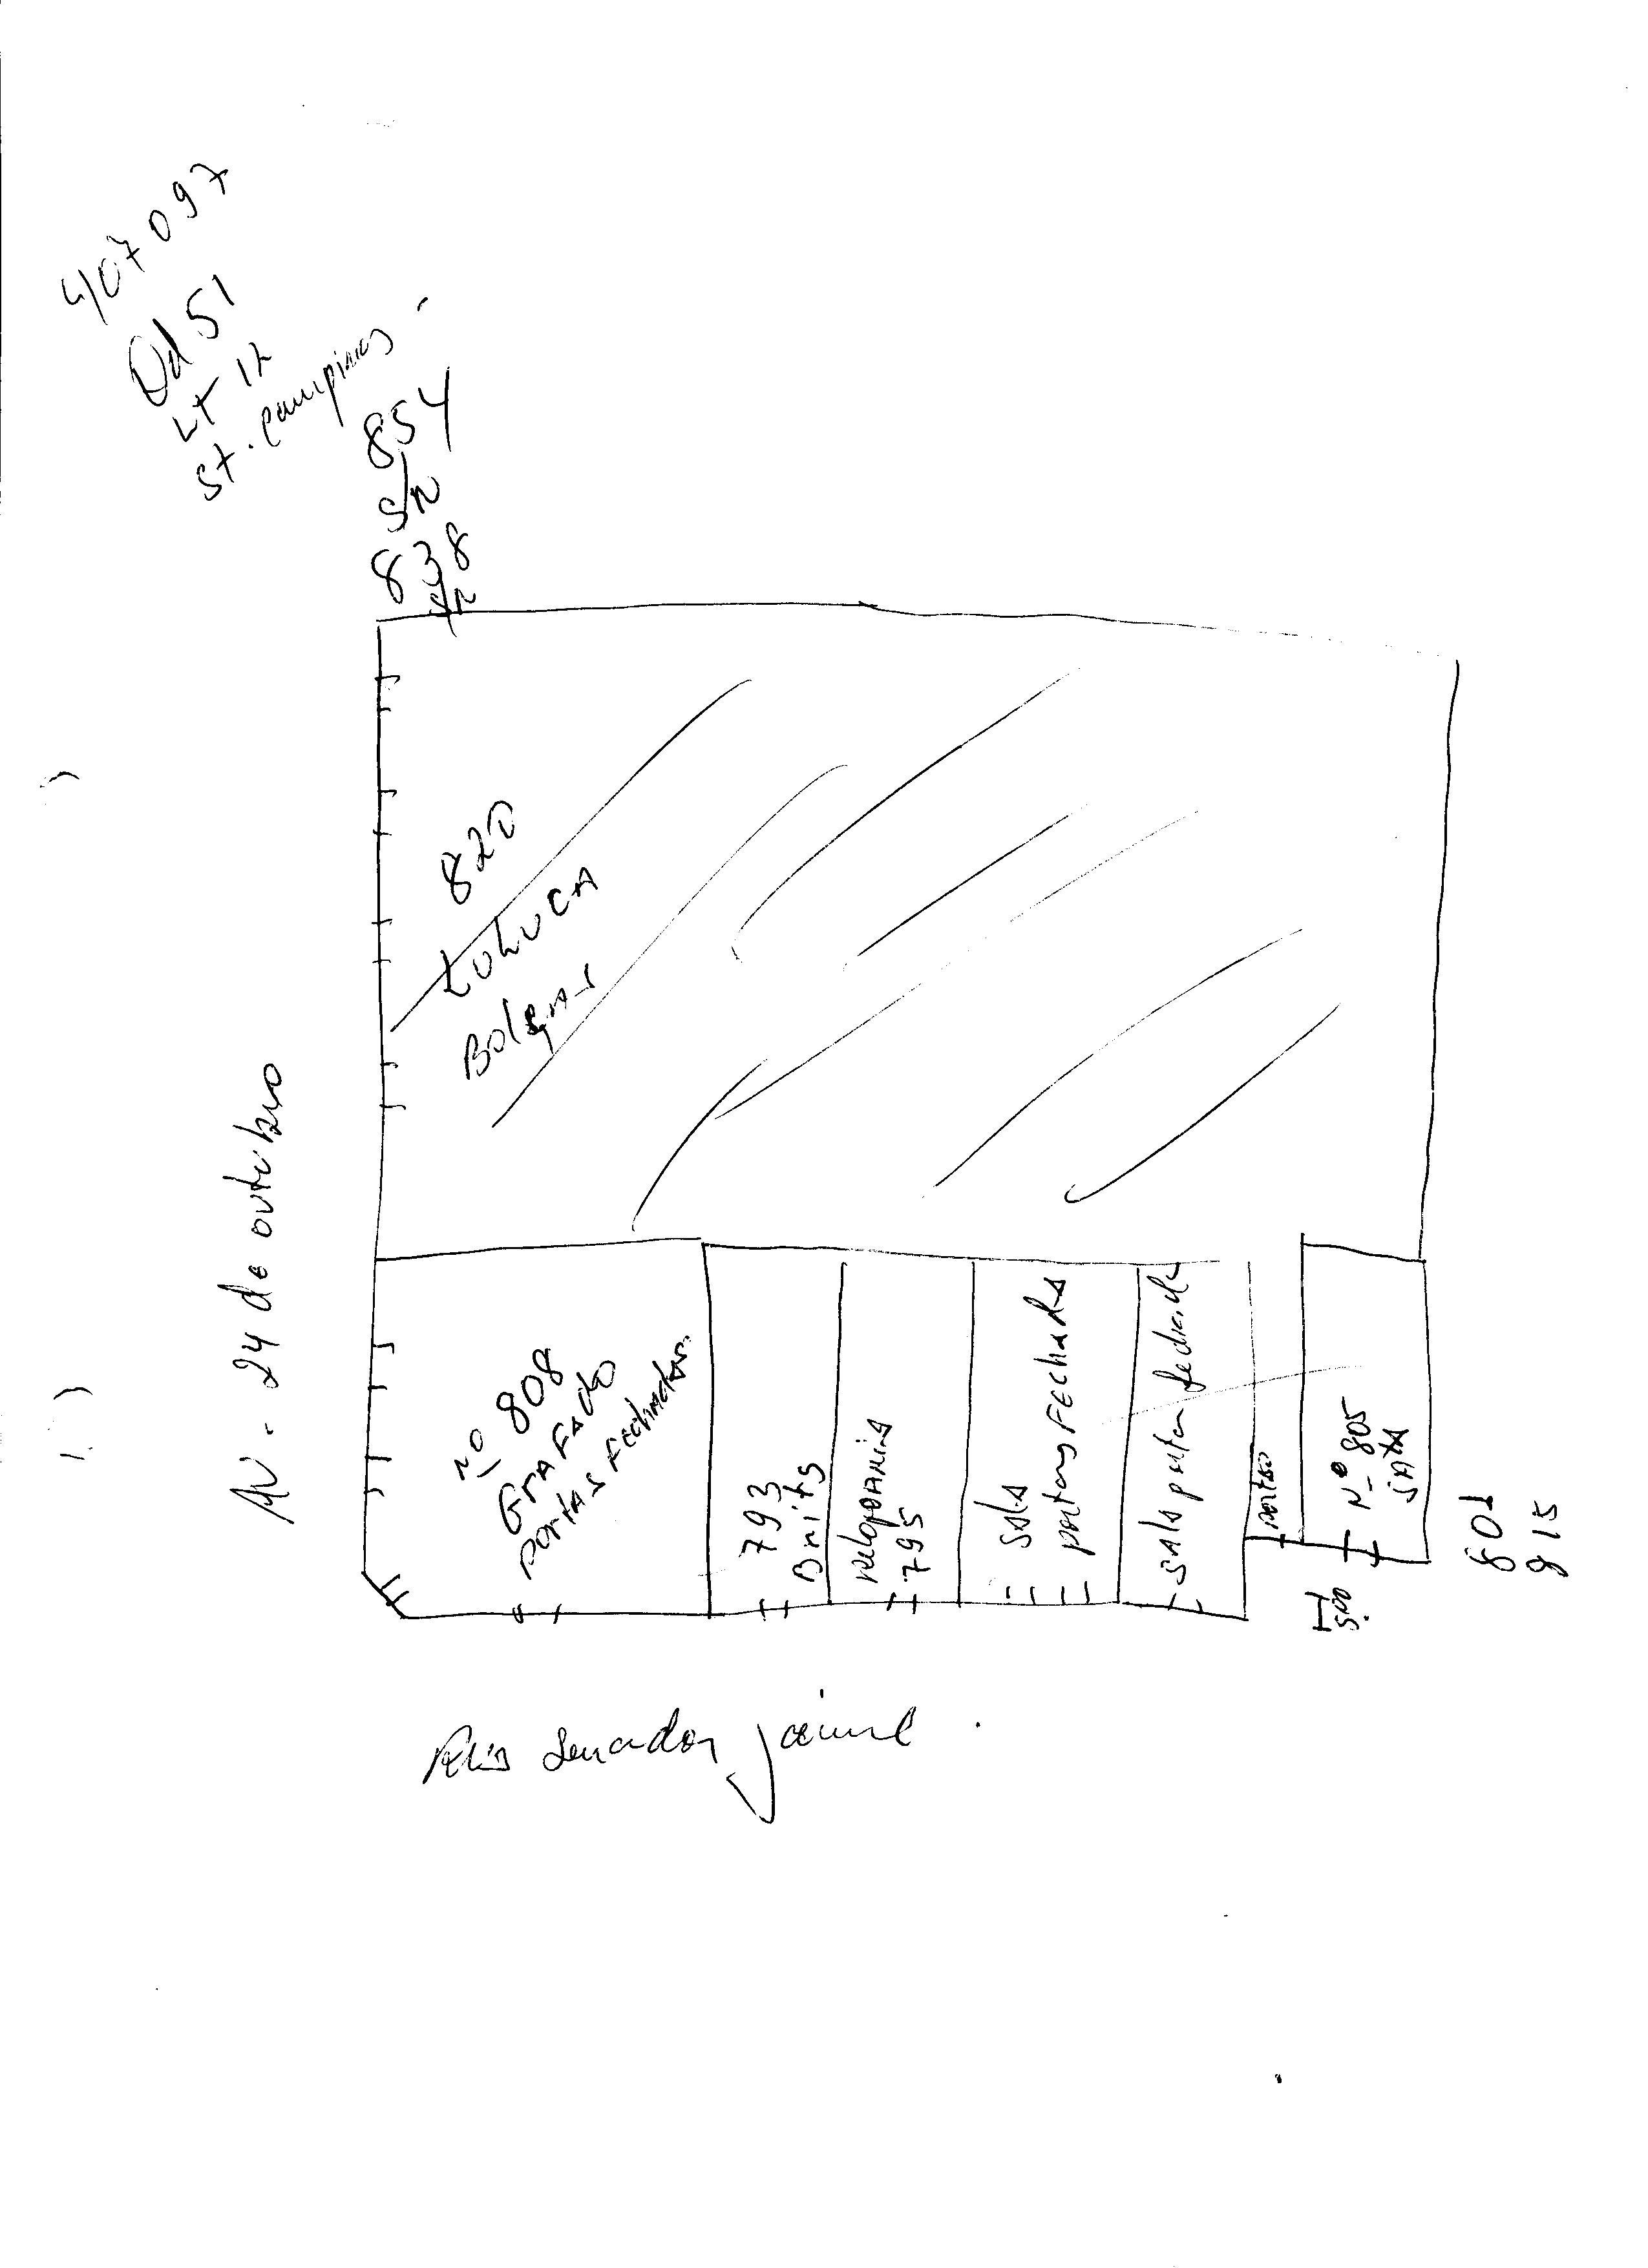 407097
Qd 51
LT 12
St. campinas
854
S/n
838
S/n
AV. 24 de outubro
820
Bolsas
no 808
Grafado
portas Fechadas
793
Brits
relojoaria
795
sala
portas FEchada
sala porta fechada
portão
Nº 805
SALA
5,00
801
815
Rua Senador jaime